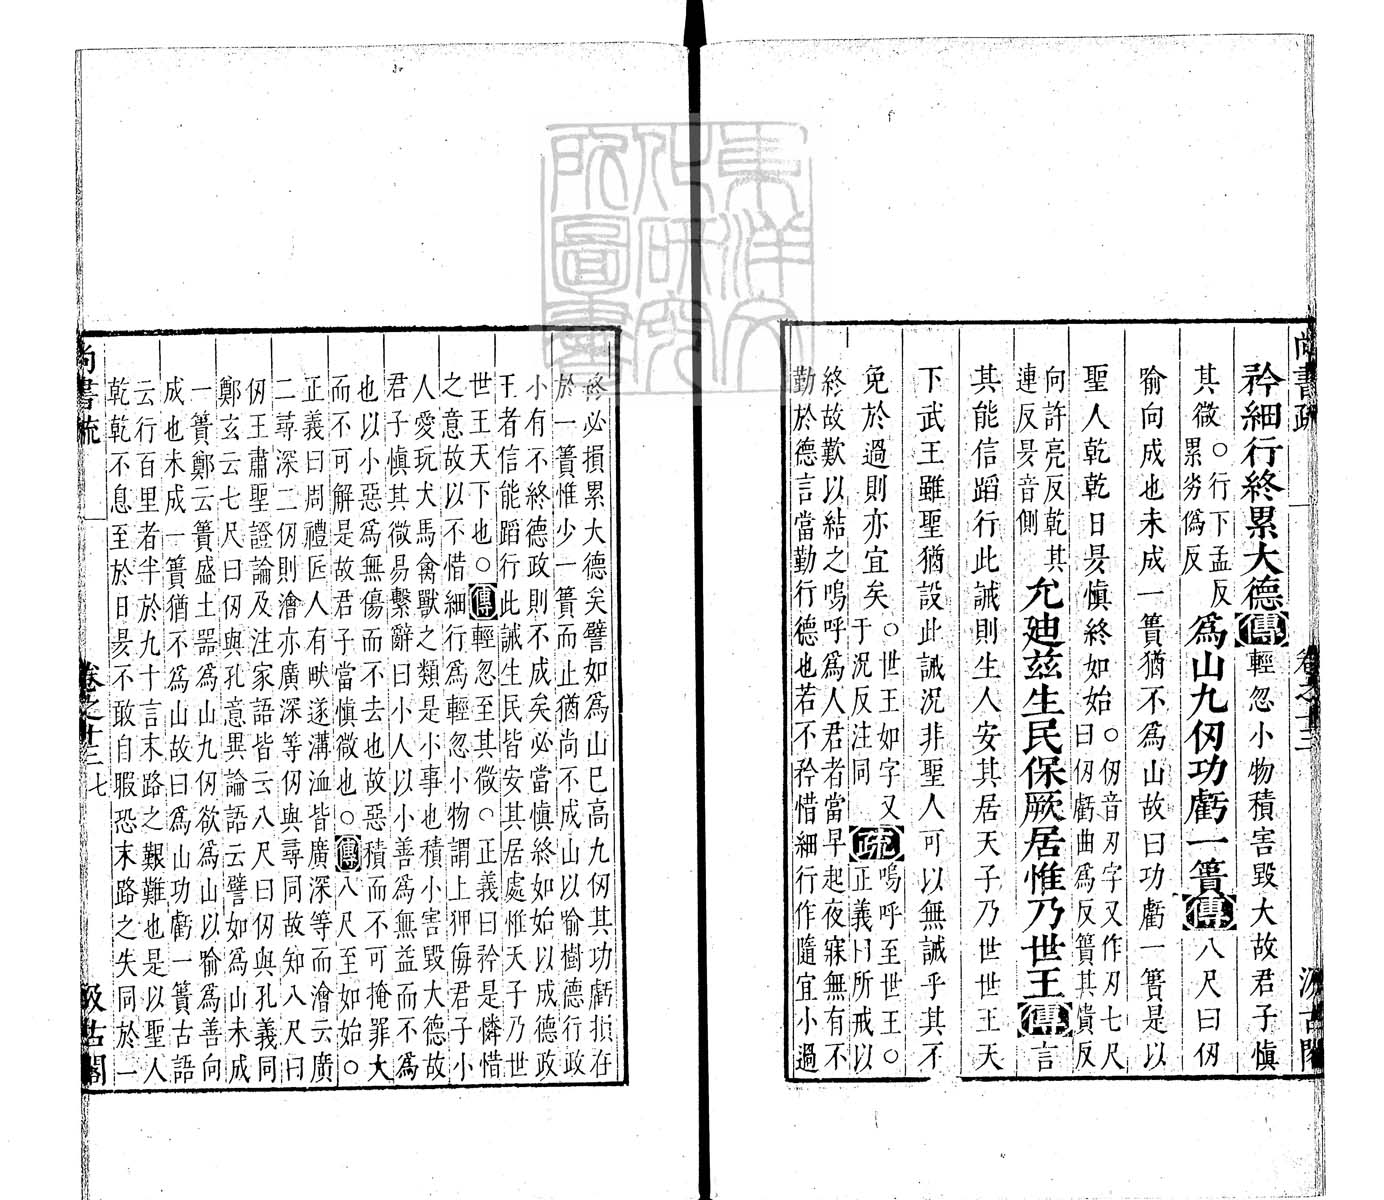 尚書疏 卷之十三 汲古閣
矜細行終累大德傳輕忽小物積害毀大故君子慎
其微○行下孟反累劣僞反爲山九仞功虧一簣傳八尺曰仞
喻向成也未成一簣猶不爲山故曰功虧一簣是以
聖人乾乾日昃慎終如始○仞音刃字又作刃七尺曰仞虧曲爲反簣其潰反
向許亮反乾其連反昃音側允迪茲生民保厥居惟乃世王傳言
其能信蹈行此誡則生人安其居天子乃世世王天
下武王雖聖猶設此誡況非聖人可以無誡乎其不
免於過則亦宜矣○世王如字又于況反注同疏嗚呼至世王○正義曰所戒以
終故歎以結之嗚呼爲人君者當早起夜寐無有不
勤於德言當勤行德也若不矜惜細行作隨宜小過
終必損累大德矣譬如爲山已高九仞其功虧損存
於一簣惟少一簣而止猶尚不成山以喻樹德行政
小有不終德政則不成矣必當慎終如始以成德政
王者信能蹈行此誡生民皆安其居處惟天子乃世
世王天下也○傳輕忽至其微○正義曰矜是憐惜
之意故以不惜細行爲輕忽小物謂上狎侮君子小
人愛玩犬馬禽獸之類是小事也積小害毀大德故
君子慎其微易繫辭曰小人以小善爲無益而不爲
也以小惡爲無傷而不去也故惡積而不可掩罪大
而不可解是故君子當慎微也○傳八尺至如始○
正義曰周禮匠人有畎遂溝洫皆廣深等而澮云廣
二尋深二仞則澮亦廣深等仞與尋同故知八尺曰
仞王肅聖證論及注家語皆云八尺曰仞與孔義同
鄭玄云七尺曰仞與孔意異論語云譬如爲山未成
一簣鄭云簣盛土器爲山九仞欲爲山以喻爲善向
成也未成一簣猶不爲山故曰爲山功虧一簣古語
云行百里者半於九十言末路之艱難也是以聖人
乾乾不息至於日昃不敢自暇恐末路之失同於一
尚書疏 卷之十三 七 汲古閣
東洋文化研究所圖書